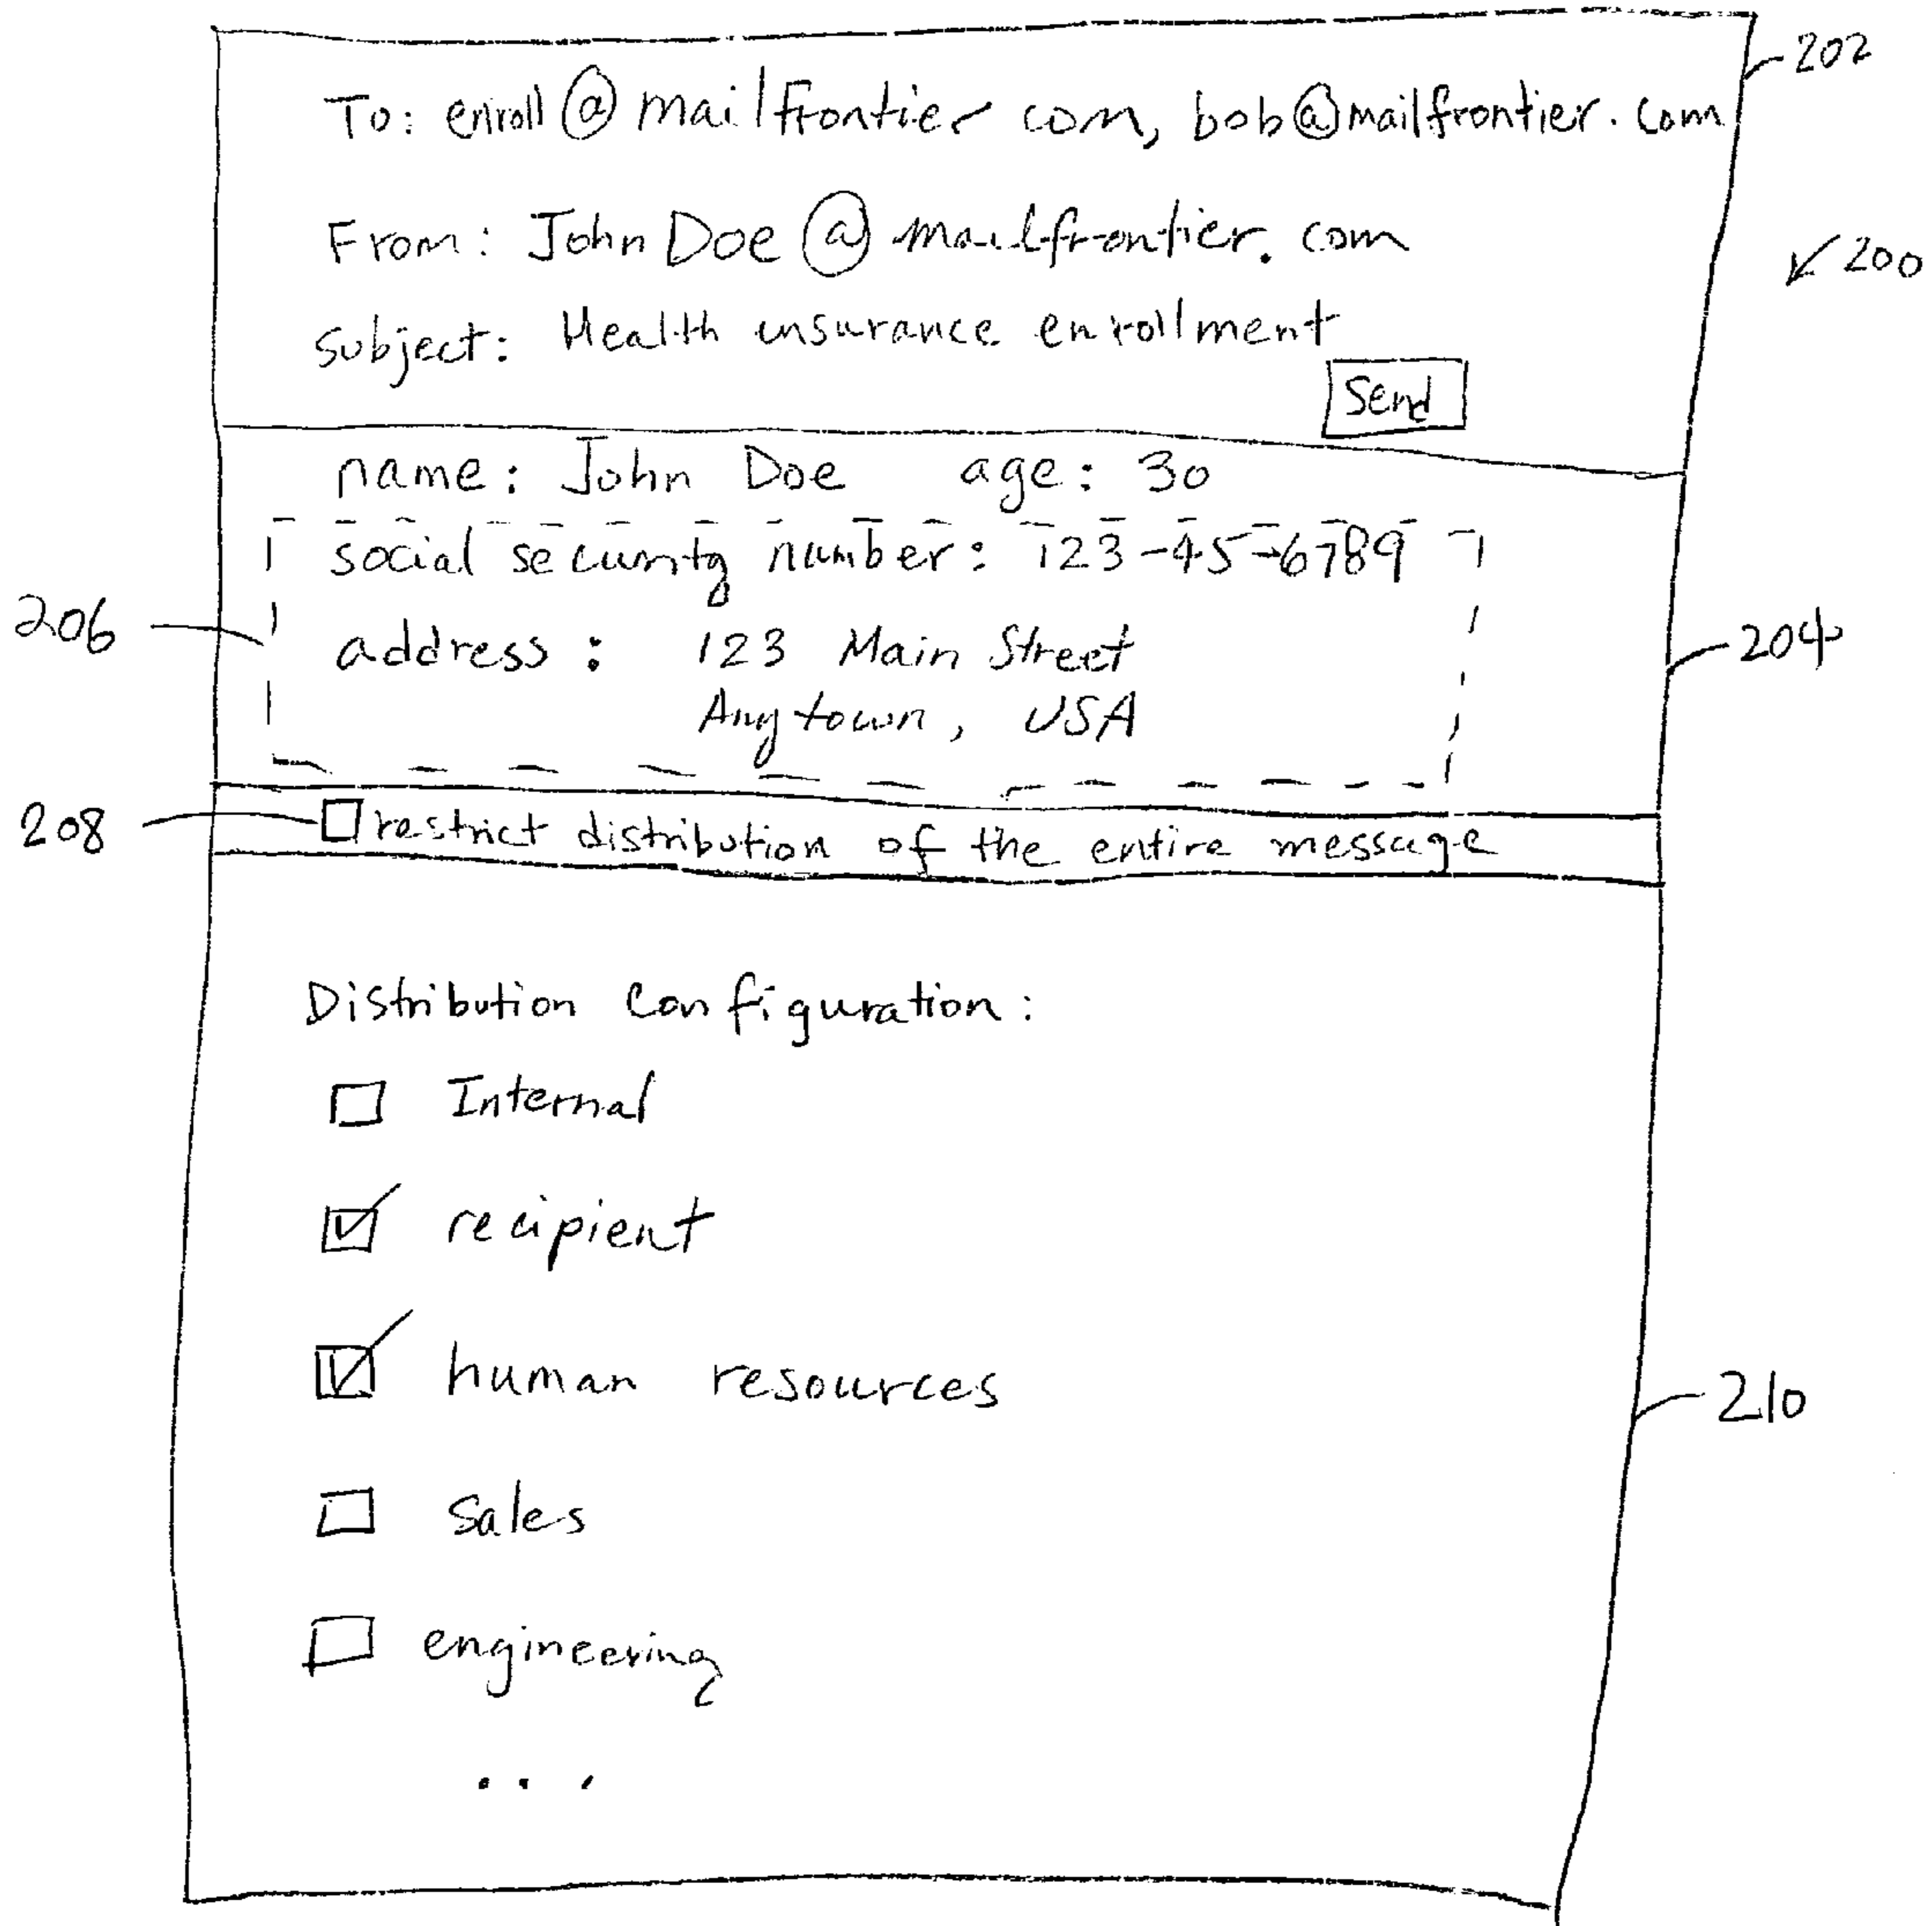 202
To: enroll@mailfrontier com, bob@mailfrontier.com
From: John Doe @ mailfrontier. com
200
Subject: Health insurance enrollment
Send
name: John Doe age: 30
social security number: 123-45-6789
206
address: 123 Main Street
204
Anytown, USA
208
restrict distribution of the entire message
Distribution Configuration:
Internal
recipient
human resources
210
Sales
engineering
...